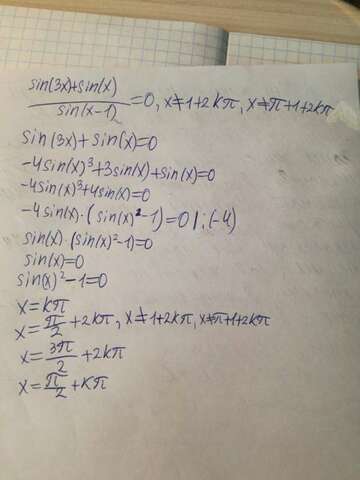 sin(3x)+sin(x)
sin(x-1)
=0, x≠1+2kπ, x≠π+1+2kπ
sin(3x)+sin(x)=0
-4sin(x)³+3sin(x)+sin(x)=0
-4sin(x)³+4sin(x)=0
-4sin(x)·(sin(x)²-1)=0 |:(-4)
sin(x)·(sin(x)²-1)=0
sin(x)=0
sin(x)²-1=0
x=kπ
x=π/2+2kπ, x≠1+2kπ, x≠π+1+2kπ
x=3π/2+2kπ
x=π/2+kπ